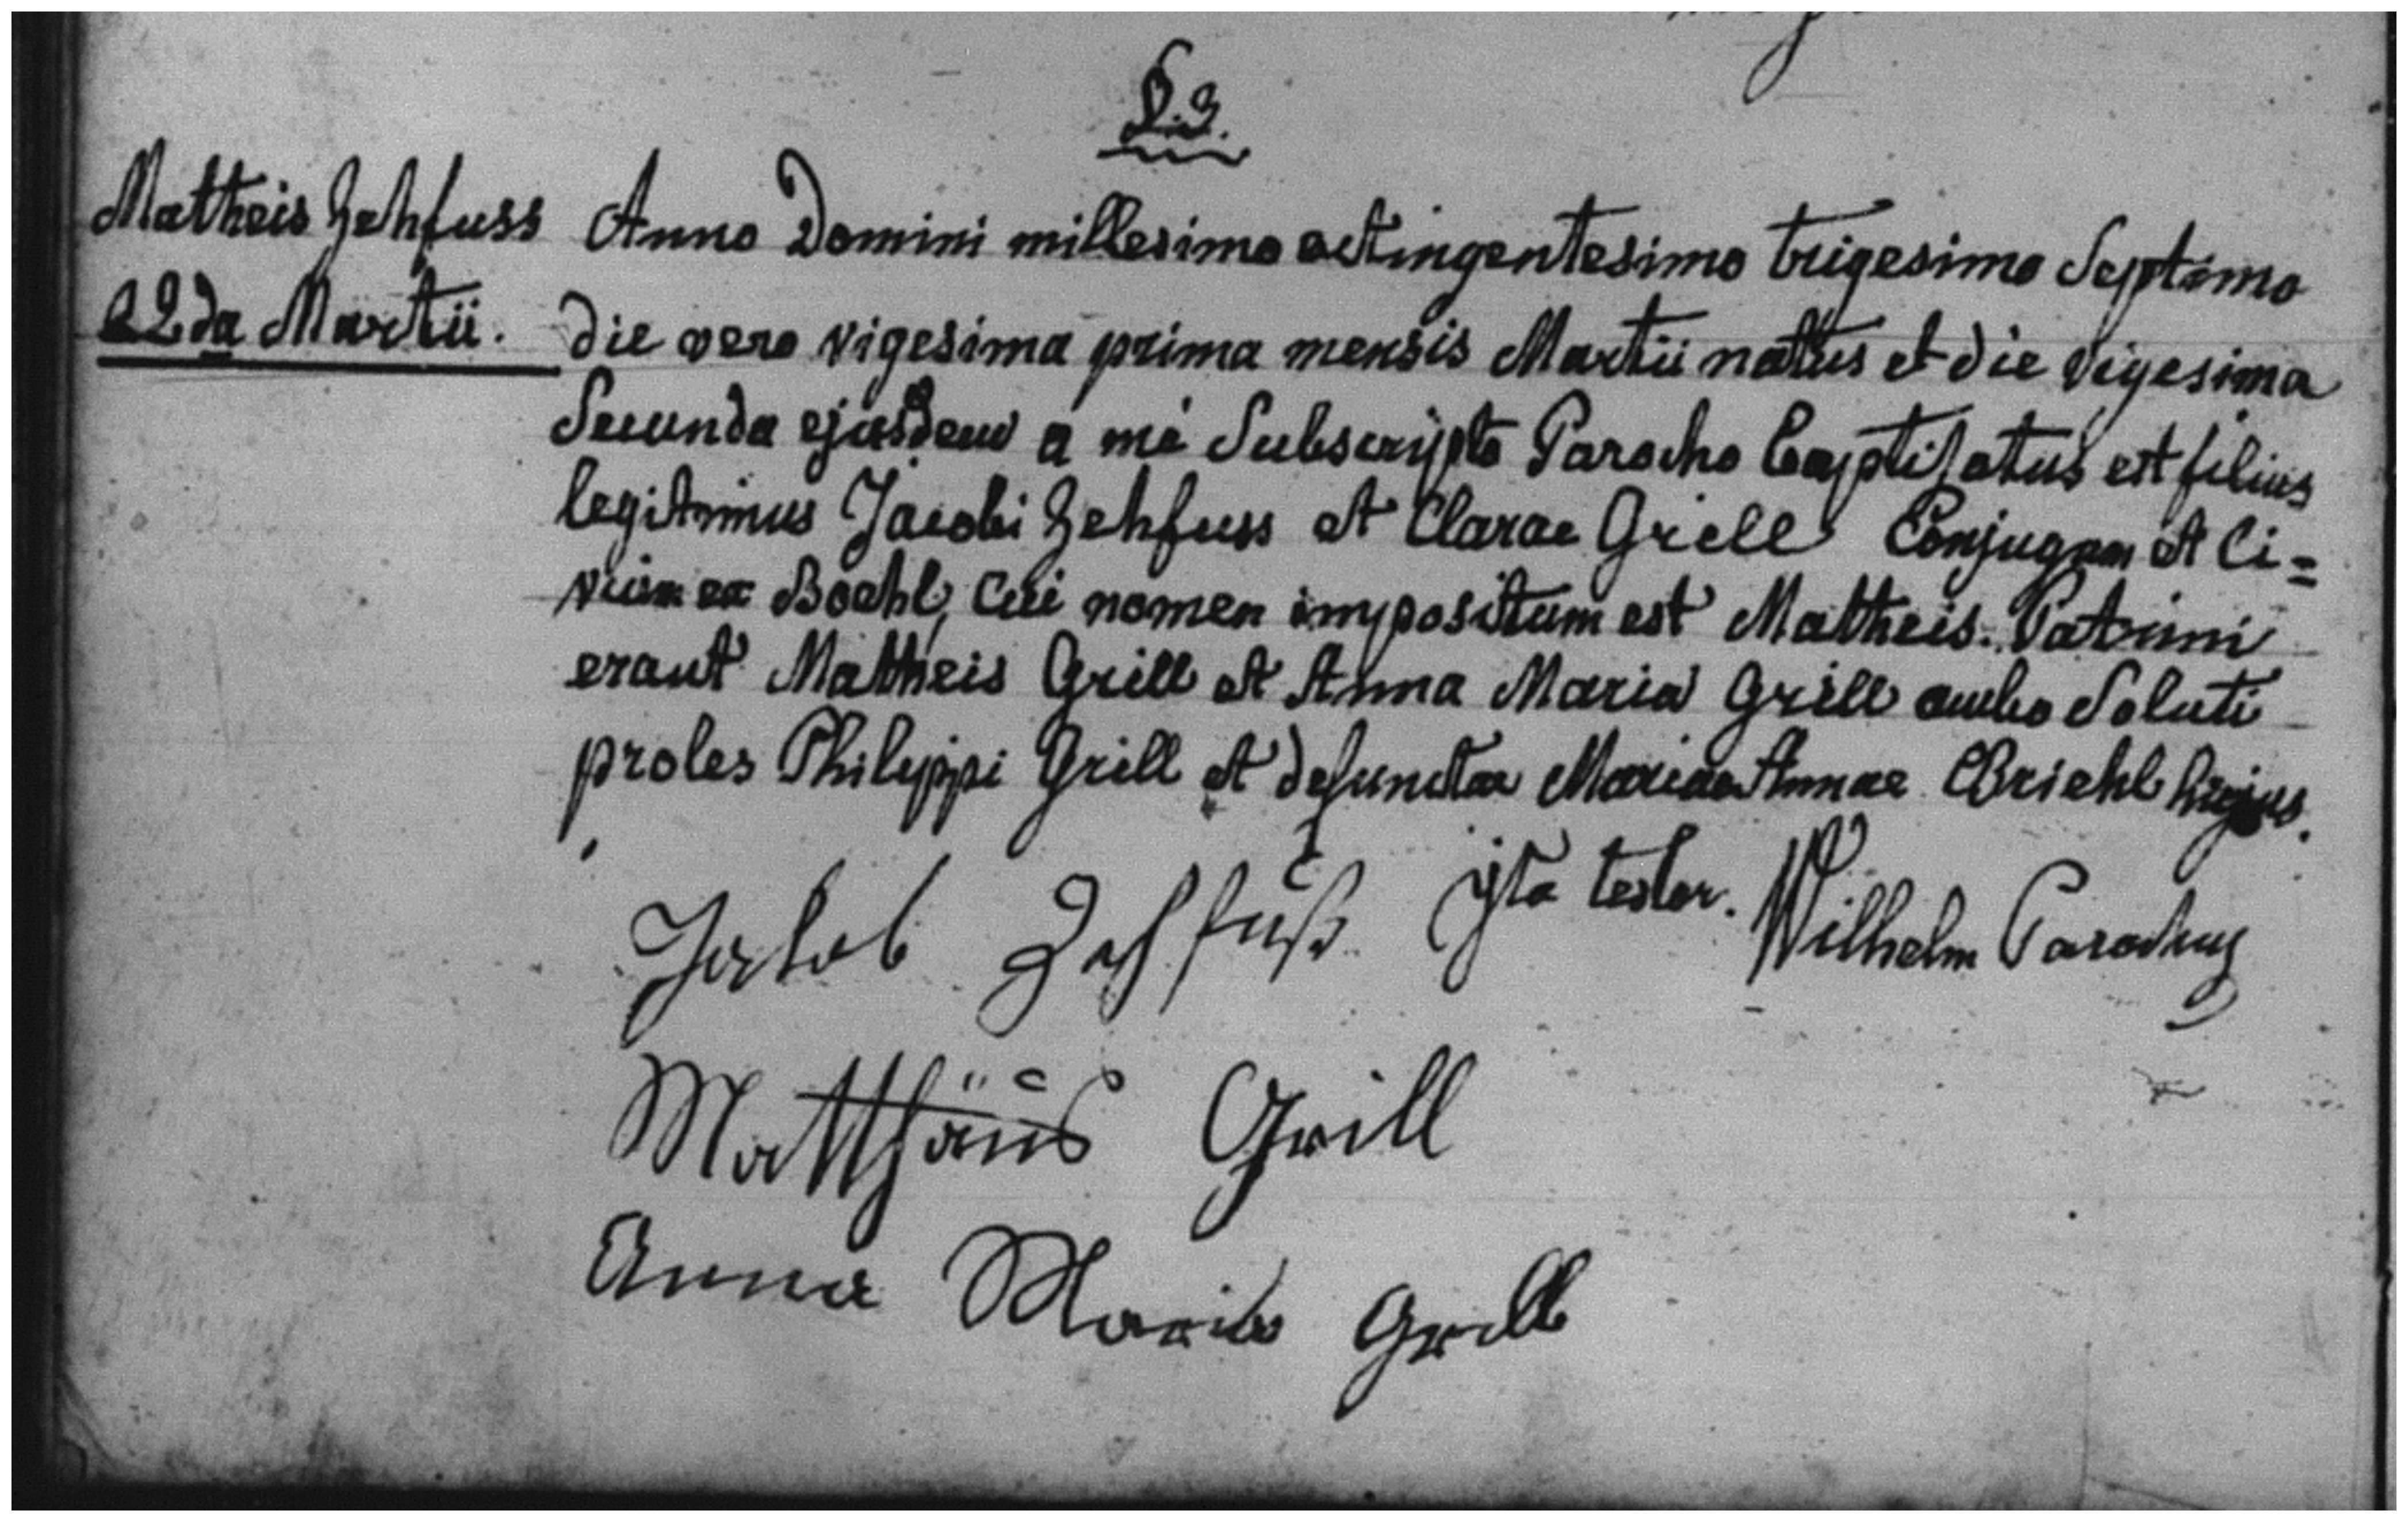 §.3.
Matheis Zehfuss
22da Martii.
Anno Domini millesimo octingentesimo trigesimo Septimo
die vero vigesima prima mensis Martii natus et die vigesima
Secunda ejusdem a me Subscripto Parocho baptisatus est filius
legitimus Jacobi Zehfuss et Clarae Grill Conjugum et Ci=
vium ex Boehl, Cui nomen impositum est Matheis. Patrini
erant Matheis Grill et Anna Maria Grill ambo Soluti
proles Philippi Grill et defunctae Mariae Annae Briehl hujus.
Jta testor. Wilhelm Parochus
Jakob Zehfuß
Matthäus Grill
Anna Maria Grill